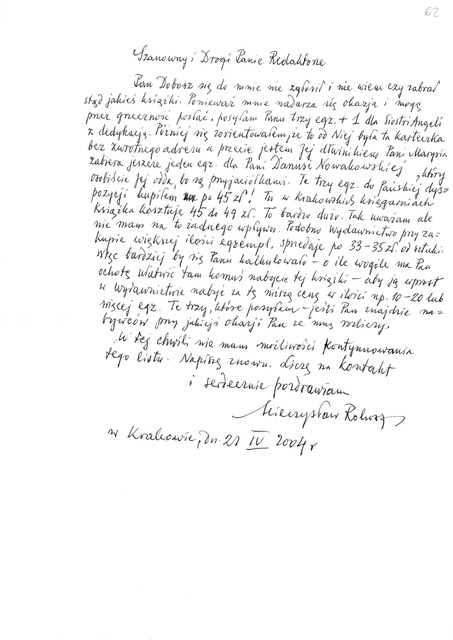 62
Szanowny i Drogi Panie Redaktorze
Pan Dobosz się do mnie nie zgłosił i nie wiem czy zabrał
stąd jakieś książki. Ponieważ mnie nadarza się okazja i mogę
przez grzeczność posłać, posyłam Panu trzy egz. + 1 dla Siostri Angeli
z dedykacją. Później się zorientowałem, że to od Niej była ta karteczka
bez zwrotnego adresu a przecie jestem Jej dłużnikiem. Pani Marynia
zabiera jeszcze jeden egz. dla Pani Danuse Nowakowskiej, który
osobiście jej odda, bo są przyjaciółkami. Te trzy egz. do Pańskiej dys-
pozycji kupiłem po 45 zł! Tu w krakowskich księgarniach
książka kosztuje 45 do 49 zł. To bardzo dużo. Tak uważam ale
nie mam na to żadnego wpływu. Podobno wydawnictwo przy za-
kupie większej ilości egzempl. sprzedaje po 33-35 zł od sztuki
więc bardziej by się Panu kalkulowało - o ile wogóle ma Pan
ochotę ułatwić tam komuś nabycie tej książki - aby ją wprost
w wydawnictwie nabyć za tę niższą cenę w ilości np. 10-20 lub
więcej egz. Te trzy, które posyłam - jeśli Pan znajdzie na-
bywców przy jakiejś okazji Pan ze mną rozliczy.
W tej chwili nie mam możliwości kontynuowania
tego listu. Napiszę znowu. Liczę na kontakt
i serdecznie pozdrawiam
Mieczysław
w Krakowie, dn. 21 IV 2004 r